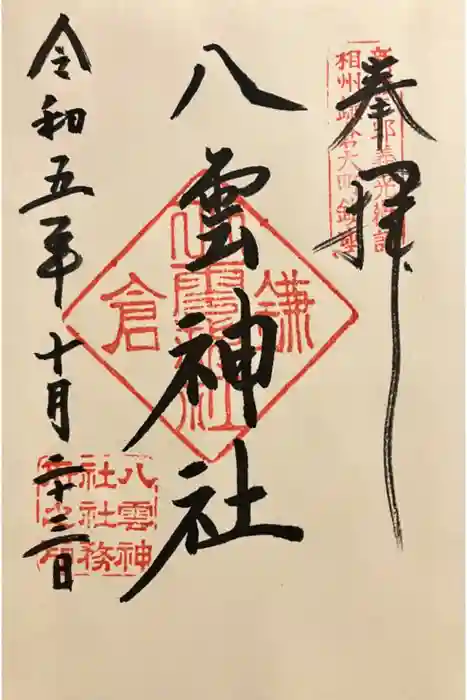 奉拝
相州鎌倉大町鎮座
八雲神社
鎌倉
八雲神社
八雲神
社社務
令和五年十月二十三日